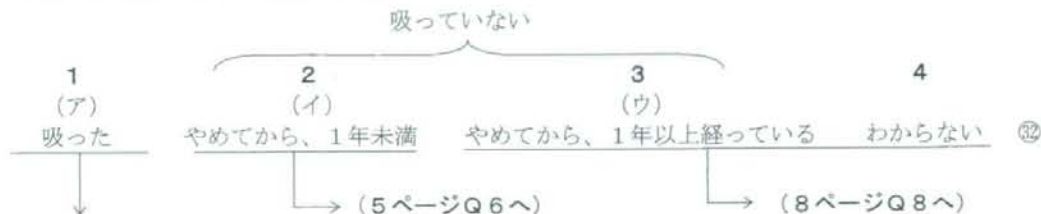 吸っていない
1 2 3 4
(ア) (イ) (ウ)
吸った やめてから、1年未満 やめてから、1年以上経っている わからない ㉜
(5ページQ6へ) (8ページQ8へ)